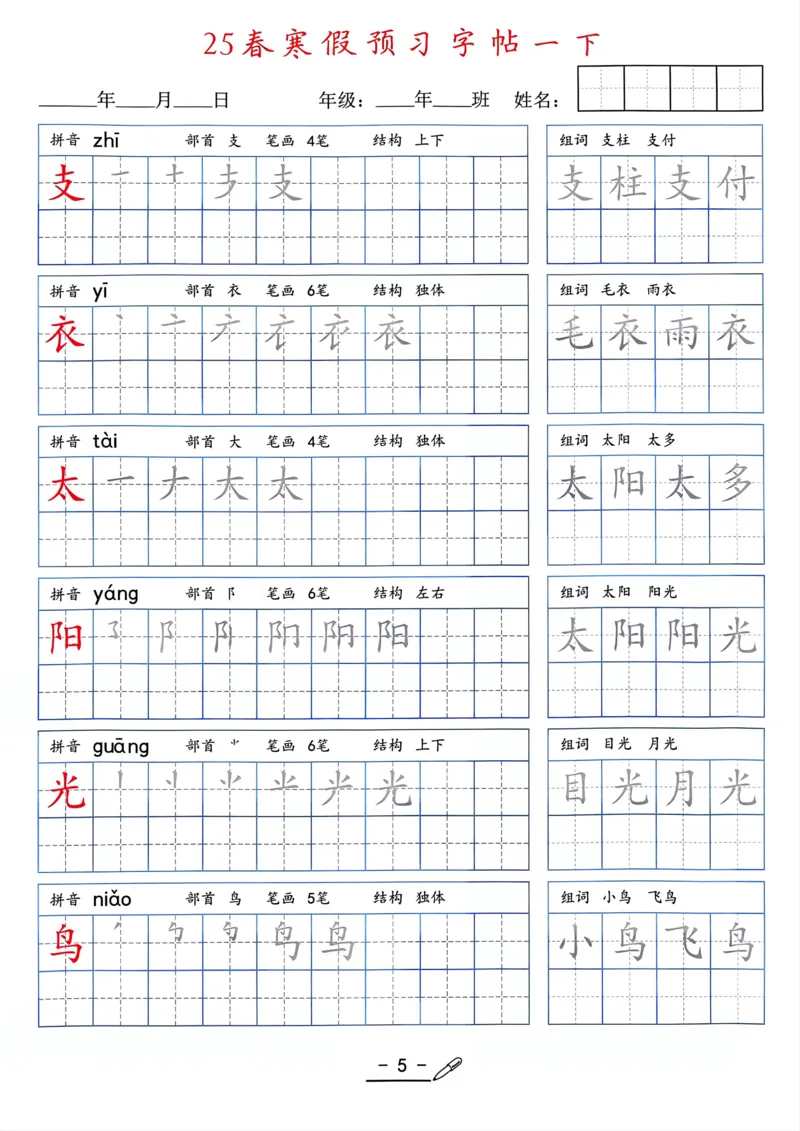 25春寒假预习字帖一下
____年___月___日 年级：___年___班 姓名：
拼音 zhī 部首 支 笔画 4笔 结构 上下 组词 支柱 支付
支 一 十 支 支柱支付
拼音 yī 部首 衣 笔画 6笔 结构 独体 组词 毛衣 雨衣
衣 丶 亠 衣 毛衣雨衣
拼音 tài 部首 大 笔画 4笔 结构 独体 组词 太阳 太多
太 一 ナ 大 太 太阳太多
拼音 yáng 部首 阝 笔画 6笔 结构 左右 组词 太阳 阳光
阳 阝 阳 太阳阳光
拼音 guāng 部首 ⺌ 笔画 6笔 结构 上下 组词 目光 月光
光 丨 ⺌ 光 目光月光
拼音 niǎo 部首 鸟 笔画 5笔 结构 独体 组词 小鸟 飞鸟
鸟 鸟 小鸟飞鸟
- 5 -